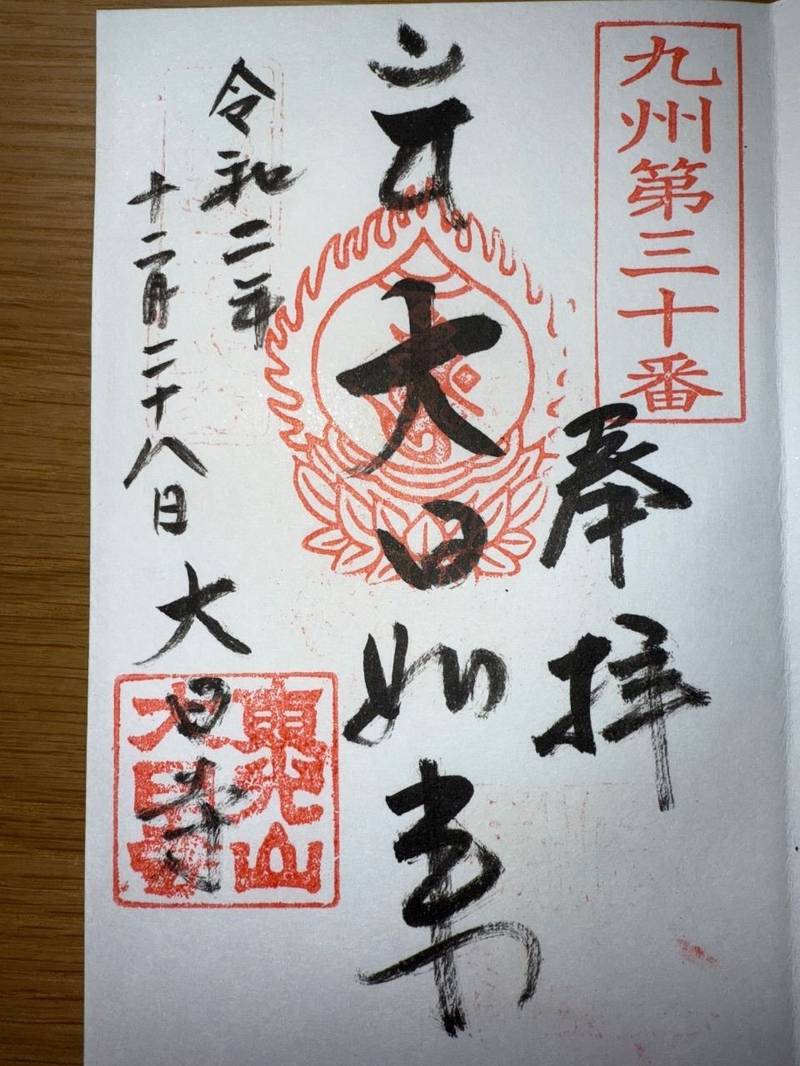 九州第三十番
奉拝
大日如来
令和二年
十二月二十八日
大日寺
東光山
大日寺